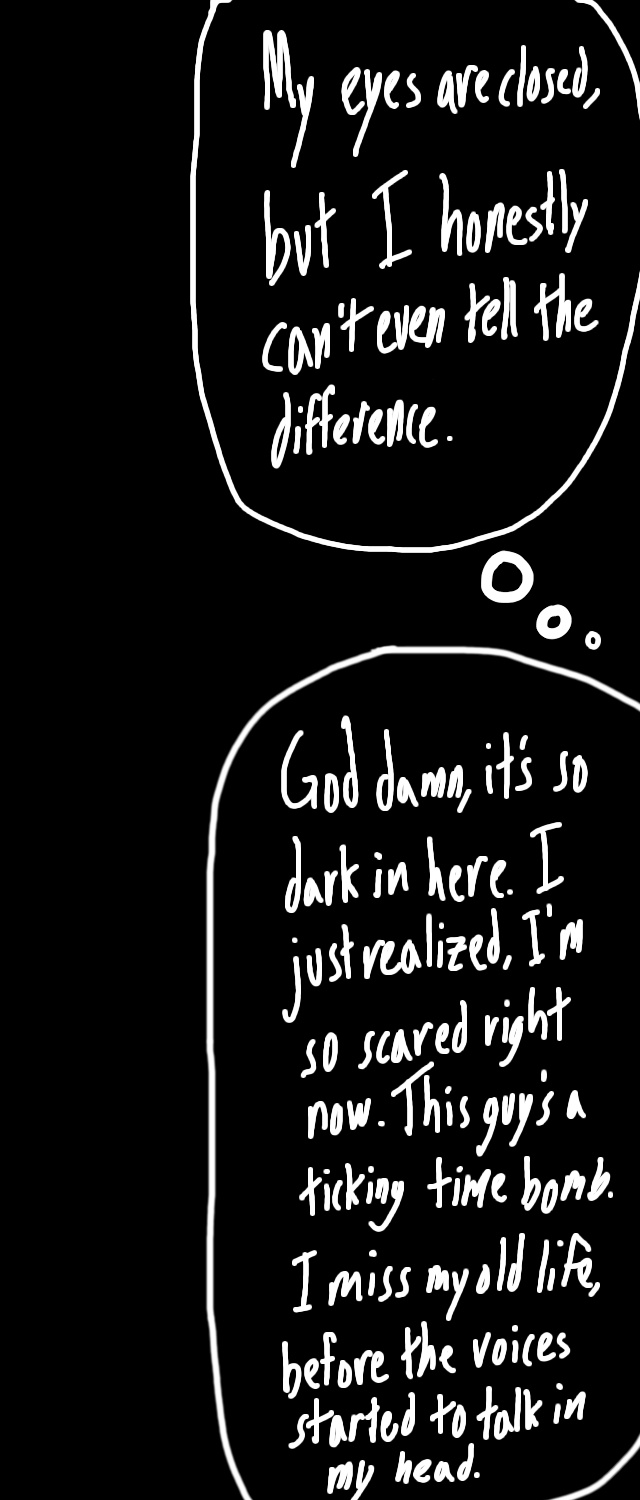 My eyes are closed,
but I honestly
can't even tell the
difference.
God damn, it's so
dark in here. I
just realized, I'm
so scared right
now. This guy's a
ticking time bomb.
I miss my old life,
before the voices
started to talk in
my head.